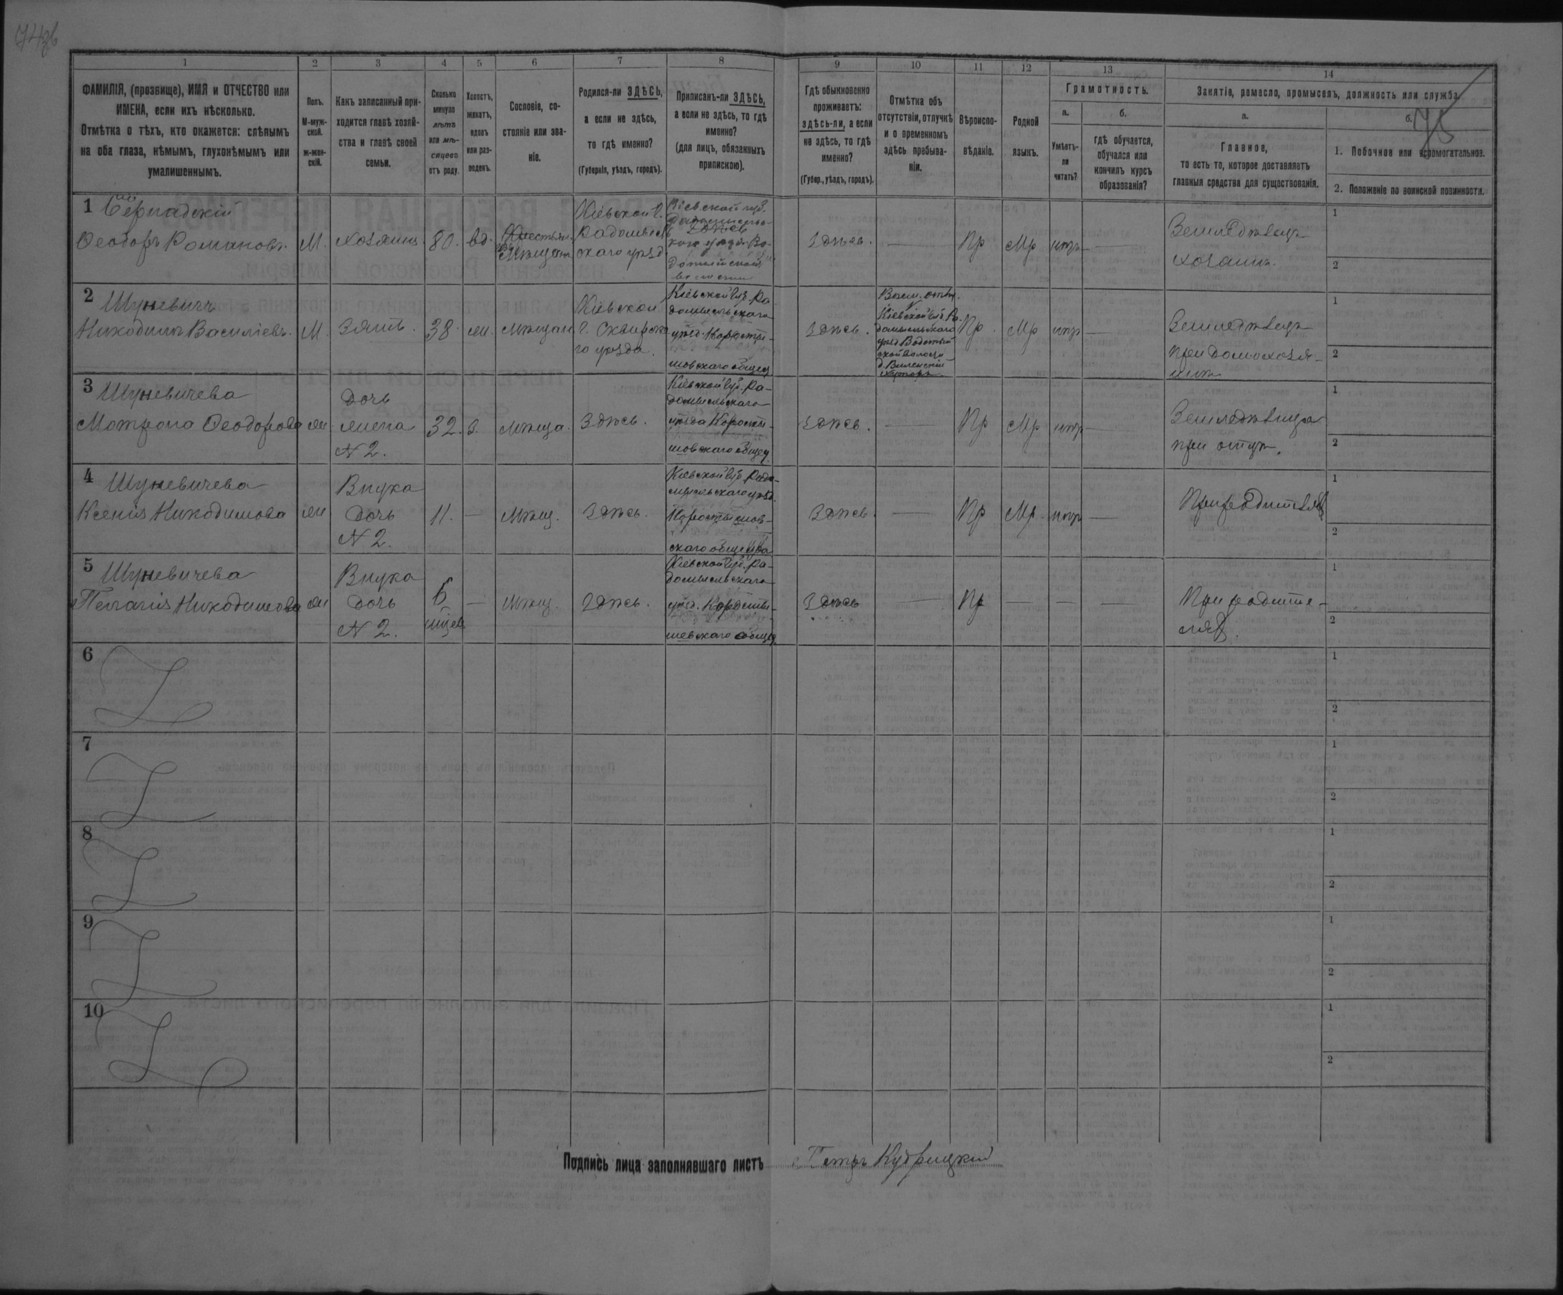 74об
75
1
2
3
4
5
6
7
8
9
10
11
12
13
14
ФАМИЛІЯ, (прозвище), ИМЯ и ОТЧЕСТВО или
ИМЕНА, если ихъ нѣсколько.
Отмѣтка о тѣхъ, кто окажется: слѣпымъ
на оба глаза, нѣмымъ, глухонѣмымъ или
умалишеннымъ.
Полъ.
М-муж-
ской.
ж-жен-
скій.
Какъ записанный при-
ходится главѣ хозяй-
ства и главѣ своей
семьи.
Сколько
минуло
лѣтъ
или мѣ-
сяцевъ
отъ роду.
Холостъ,
женатъ,
вдовъ
или раз-
веденъ.
Сословіе, со-
стояніе или зва-
ніе.
Родился-ли ЗДѢСЬ,
а если не здѣсь,
то гдѣ именно?
(Губернія, уѣздъ, городъ).
Приписанъ-ли ЗДѢСЬ,
а если не здѣсь, то гдѣ
именно?
(для лицъ, обязанныхъ
припискою).
Гдѣ обыкновенно
проживаетъ:
здѣсь-ли, а если
не здѣсь, то гдѣ
именно?
(Губер., уѣздъ, городъ).
Отмѣтка объ
отсутствіи, отлучкѣ
и о временномъ
здѣсь пребыва-
ніи.
Вѣроиспо-
вѣданіе.
Родной
языкъ.
Грамотность.
а.
Умѣетъ-
ли
читать?
б.
гдѣ обучается,
обучался или
кончилъ курсъ
образованія?
Занятіе, ремесло, промыселъ, должность или служба.
а.
Главное,
то есть то, которое доставляетъ
главныя средства для существованія.
б.
1. Побочное или вспомогательное.
2. Положеніе по воинской повинности.
1
Ѳеодоръ Романовъ
М.
хозяинъ
80.
вд.
Кіевской г.
Радомысль
скаго уѣзд
здѣсь.
—
Пр
Мр
нтр
—
Земледѣлецъ
хозяинъ.
1
2
2 Шуневичъ
Никодимъ Василіевъ.
М
Зять.
38.
жн.
мѣщан
Кіевской
г. Сквирска
го уѣзда.
Кіевской губ. Ра
домысльскаго
уѣзд. Коросты-
шовскаго общес
здѣсь.
Кіевской г. Ра
домысльскаго
Пр.
Мр
нтр
—
Земледѣлецъ
при домохозя-
инѣ
1
2
3 Шуневичева
Мотрона Ѳеодорова
жн
Дочь
жена
№ 2.
32.
з.
мѣща.
Здѣсь.
Кіевской губ. Ра-
домысльскаго
уѣзда Коросты-
шовскаго общес
здѣсь.
—
Пр
Мр
нтр
—
Земледѣлица
1
2
4 Шуневичева
Ксенія Никодимова
жн
Внука
Дочь
№ 2.
11.
—
Мѣщ.
Здѣсь.
Кіевской губ. Радо-
мысльскаго уѣзд.
Коростышов-
скаго общества
Здѣсь.
—
Пр
Мр.
нтр
—
При родителях
1
2
5 Шуневичева
Пелагія Никодимова
жн
Внука
Дочь
№ 2.
6
мѣсец
—
мѣщ.
здѣсь.
Кіевской губ. Ра-
домысльскаго
уѣзд. Коросты-
шевскаго общес
Здѣсь
—
Пр
—
—
—
При родите-
лях.
1
2
6
1
2
7
1
2
8
1
2
9
1
2
10
1
2
Подпись лица заполнявшаго листъ
Петръ Кудрицкій